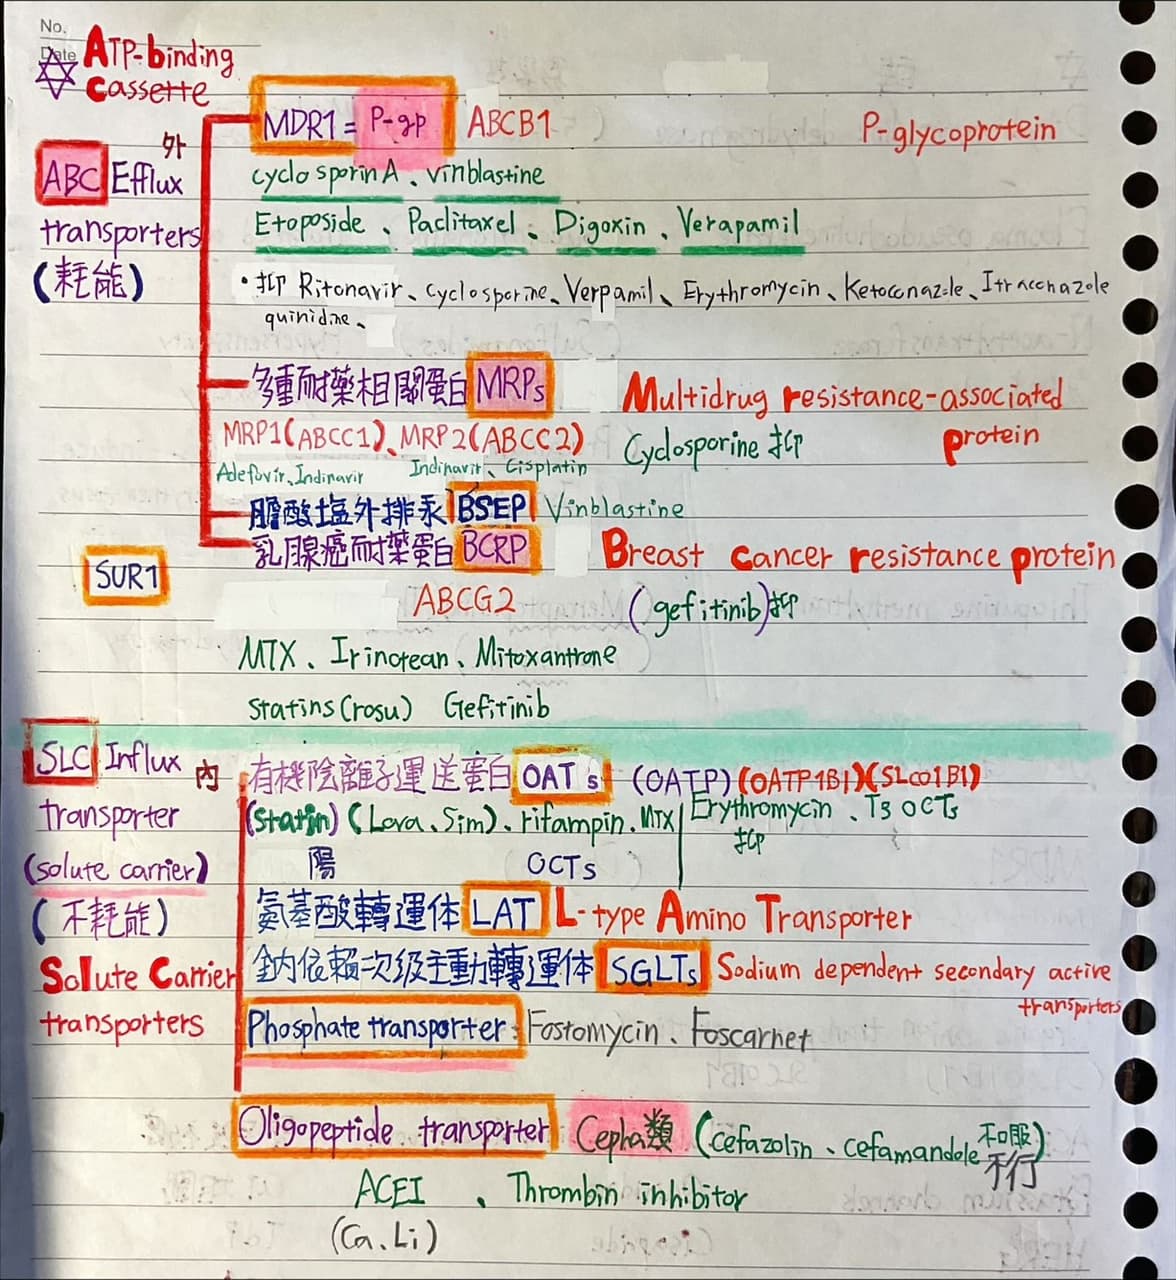 No.
Date
ATP-binding
cassette
MDR1 = P-gp ABCB1 P-glycoprotein
外
ABC Efflux
transporters
(耗能)
cyclosporin A、vinblastine
Etoposide、Paclitaxel、Digoxin、Verapamil
・抑 Ritonavir、cyclosporine、Verpamil、Erythromycin、Ketoconazole、Itraconazole
quinidine、
多種耐藥相關蛋白 MRPs Multidrug resistance-associated
protein
MRP1(ABCC1)、MRP2(ABCC2) Cyclosporine 抑
Adefovir、Indinavir Indinavir、Cisplatin
膽酸塩外排汞 BSEP Vinblastine
乳腺癌耐藥蛋白 BCRP Breast cancer resistance protein
SUR1
ABCG2 (gefitinib)抑
MTX、Irinotean、Mitoxantrone
Statins(rosu) Gefitinib
SLC Influx 內
transporter
(solute carrier)
(不耗能)
Solute Carrier
transporters
有機陰離子運送蛋白 OATs (OATP)(OATP1B1)(SLCO1B1)
(Statin)(Lova、Sim)、rifampin、MTX Erythromycin、T3 OCTs
抑
陽 OCTs
氨基酸轉運体 LAT L-type Amino Transporter
鈉依賴次级主動轉運体 SGLTs Sodium dependent secondary active
transporters
Phosphate transporter: Fostomycin、Foscarnet
Oligopeptide transporter Cepha類 (cefazolin、cefamandole 不口服)
不行
ACEI、Thrombin inhibitor
(Ca、Li)